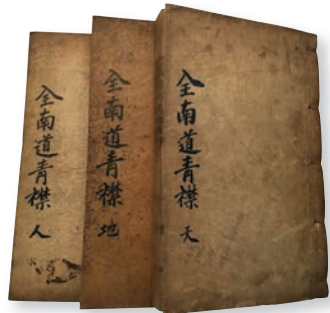 全南道青襟 天
全南道青襟 地
全南道青襟 人